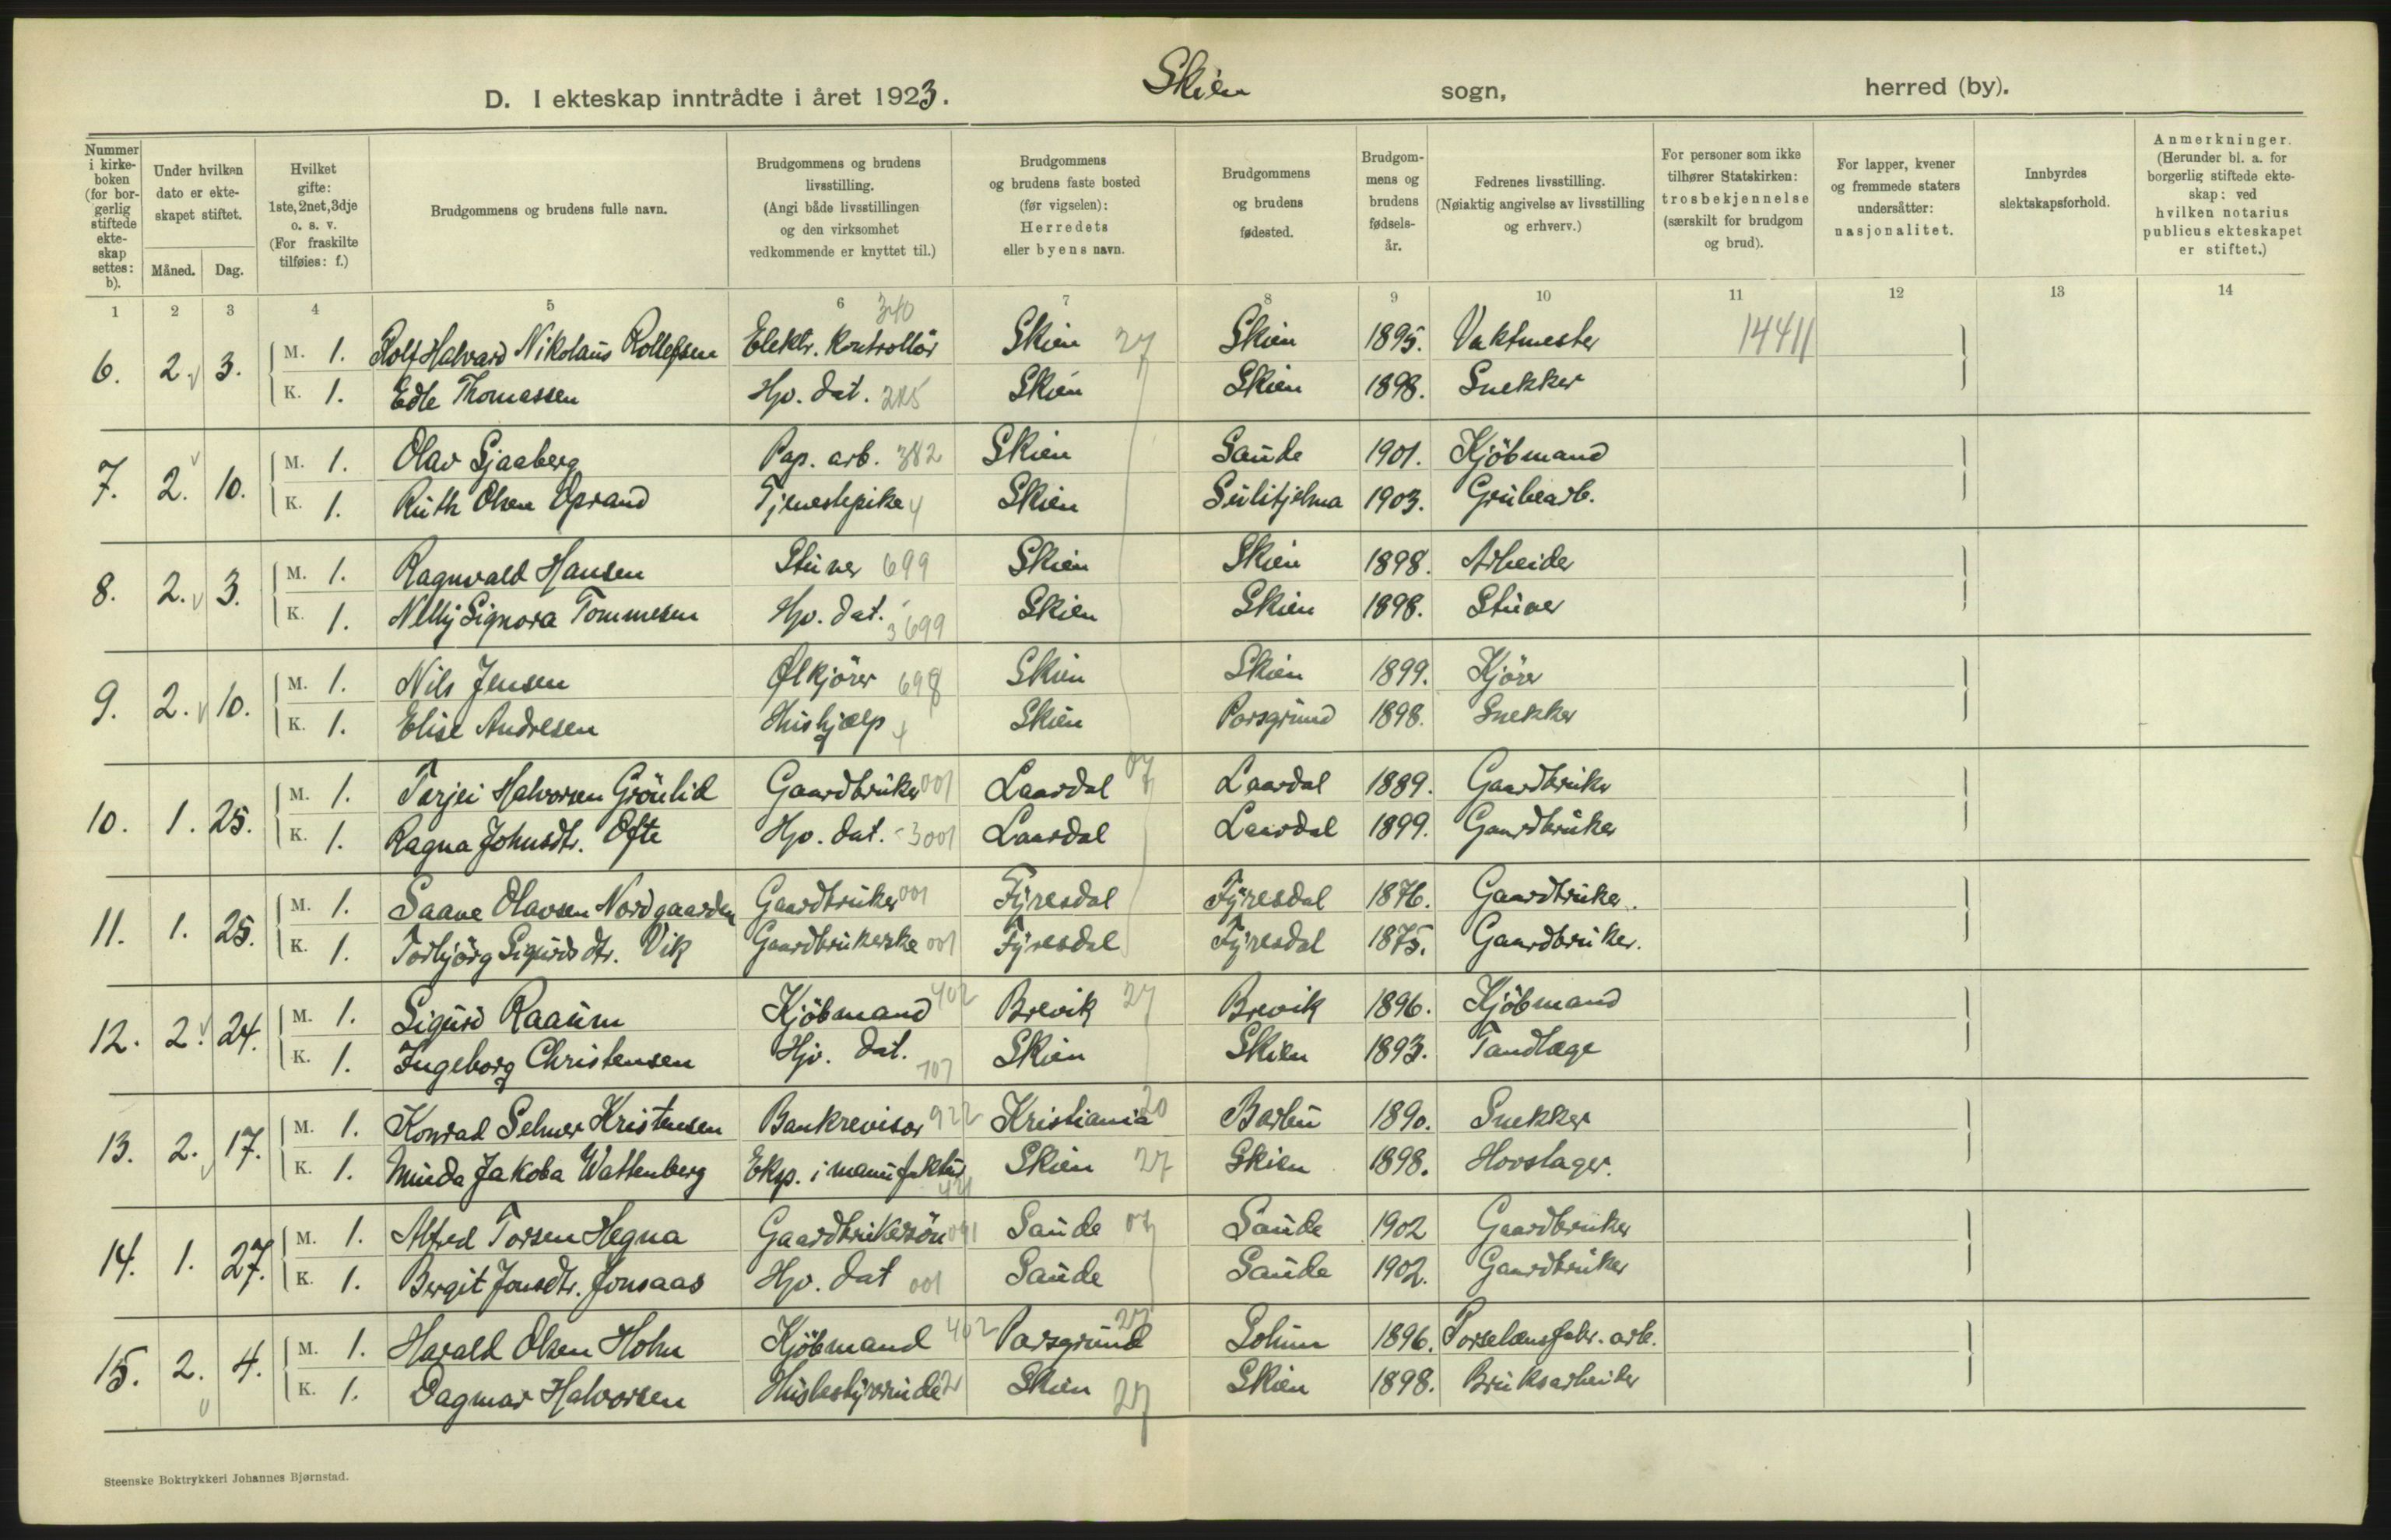 D. I ekteskap inntrådte i året 1923. Skien sogn, herred (by).
Nummer i kirke-boken (for bor-gerlig stiftede ekte-skap settes: b).
Under hvilken dato er ekte-skapet stiftet.
Måned. Dag.
Hvilket gifte: 1ste, 2net, 3dje o. s. v. (For fraskilte tilføies: f.)
Brudgommens og brudens fulle navn.
Brudgommens og brudens livsstilling. (Angi både livsstillingen og den virksomhet vedkommende er knyttet til.)
Brudgommens og brudens faste bosted (før vigselen): Herredets eller byens navn.
Brudgommens og brudens fødested.
Brudgom-mens og brudens fødsels-år.
Fedrenes livsstilling. (Nøiaktig angivelse av livsstilling og erhverv.)
For personer som ikke tilhører Statskirken: trosbekjennelse (særskilt for brudgom og brud).
For lapper, kvener og fremmede staters undersåtter: nasjonalitet.
Innbyrdes slektskapsforhold.
Anmerkninger. (Herunder bl. a. for borgerlig stiftede ekte-skap: ved hvilken notarius publicus ekteskapet er stiftet.)
1 2 3 4 5 6 7 8 9 10 11 12 13 14
6. 2. 3. M. 1. Rolf Halvard Nikolaus Rollefsen Elektr. Kontrollör 340 Skien 27 Skien 1895. Vaktmester 14411
K. 1. Edle Thomassen Hjv. dat. 225 Skien Skien 1898. Snekker
7. 2. 10. M. 1. Olav Sjaaberg Pap. arb. 382 Skien Saude 1901. Kjöbmand
K. 1. Ruth Olsen Oprand Tjenestepike 4 Skien Sulitjelma 1903. Grubearb.
8. 2. 3. M. 1. Ragnvald Hansen Stuver 699 Skien Skien 1898. Arbeider
K. 1. Nelly Signora Tommesen Hjv. dat. 3699 Skien Skien 1898. Stuver
9. 2. 10. M. 1. Nils Jensen Ølkjörer 698 Skien Skien 1899. Kjörer
K. 1. Elise Andresen Hushjælp 4 Skien Porsgrund 1898. Snekker
10. 1. 25. M. 1. Tarjei Halvorsen Grönlid Gaardbruker 001 Laardal 07 Laardal 1889. Gaardbruker
K. 1. Ragna Johnsdtr. Ofte Hjv. dat. -3001 Laardal Laardal 1899. Gaardbruker
11. 1. 25. M. 1. Saave Olavsen Nordgaarden Gaardbruker 001 Fyresdal Fyresdal 1876. Gaardbruker.
K. 1. Torbjörg Sigurdsdtr. Vik Gaardbrukerske 001 Fyresdal Fyresdal 1875. Gaardbruker.
12. 2. 24. M. 1. Sigurd Raaum Kjöbmand 402 Brevik 27 Brevik 1896. Kjöbmand
K. 1. Ingeborg Christensen Hjv. dat. 707 Skien Skien 1893. Tandlæge
13. 2. 17. M. 1. Konrad Selmer Kristensen Bankrevisor 922 Kristiania 20 Barbu 1890. Snekker
K. 1. Minda Jakoba Wattenberg Eksp. i manufaktur 421 Skien 27 Skien 1898. Hovslager.
14. 1. 27. M. 1. Alfred Torsen Hegna Gaardbrukersön 001 Saude 07 Saude 1902 Gaardbruker
K. 1. Bergit Jonsdtr. Jonsaas Hjv. dat 001 Saude Saude 1902. Gaardbruker
15. 2. 4. M. 1. Harald Olsen Holm Kjöbmand 402 Porsgrund 27 Solum 1896. Porselænsfabr. arb.
K. 1. Dagmar Halvorsen Husbestyrerinde 2 Skien 27 Skien 1898. Bruksarbeider
Steenske Boktrykkeri Johannes Bjørnstad.